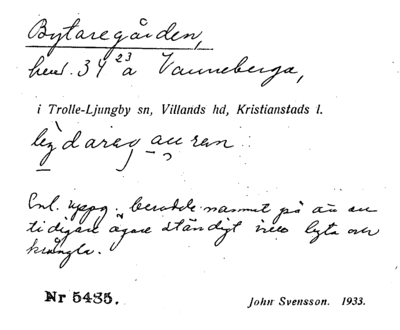 Bytaregården,
hem. 34 23 a Vanneberga,
i Trolle-Ljungby sn, Villands hd, Kristianstads l.
Enl. uppg. berodde namnet på att en
tidigare ägare ständigt ville byta och
krångla.
Nr 5485.
John Svensson. 1933.